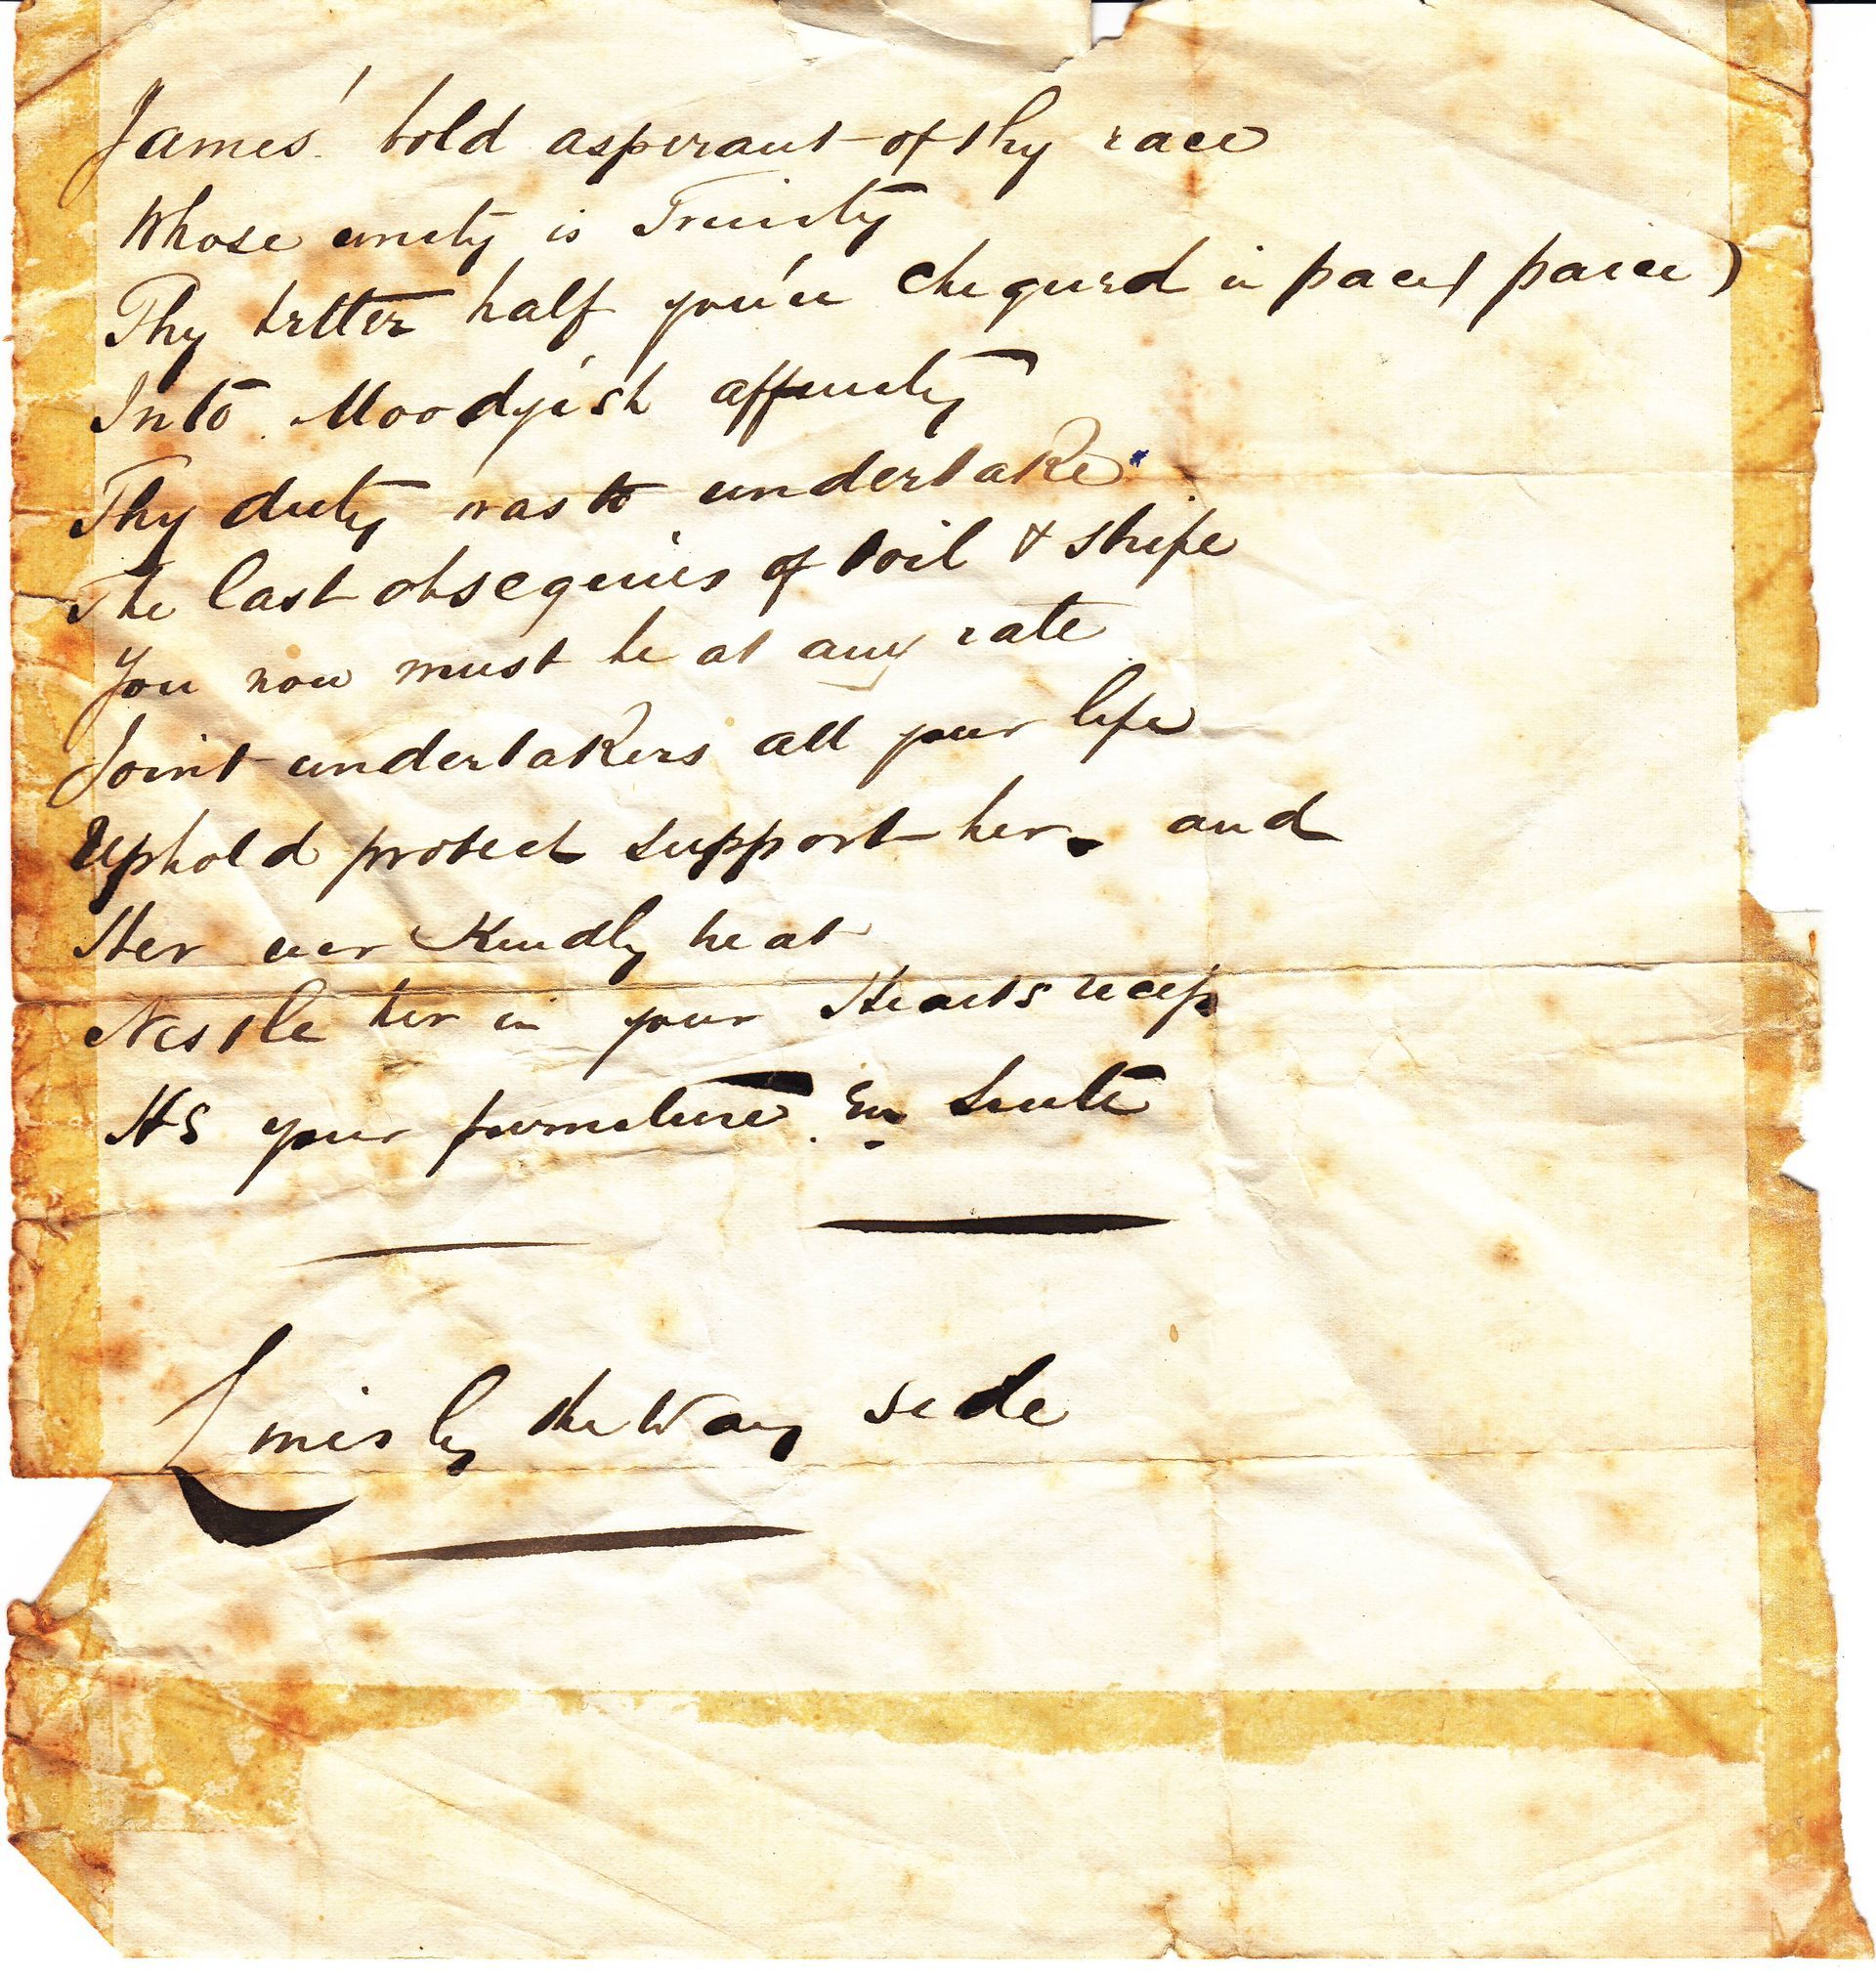 James' bold aspirant of thy race
Whose unity is Trinity
Thy better half you've chequerd in pace (paice)
Into Moodyish affinity
Thy duty was to undertake
The last obsequies of toil & strife
You now must be at any rate
Joint undertakers all your life
Uphold protect support her and
Her ever Kindly heat
Nestle her in your Hearts recess
Its your furniture En Suite
Lines by the Way side